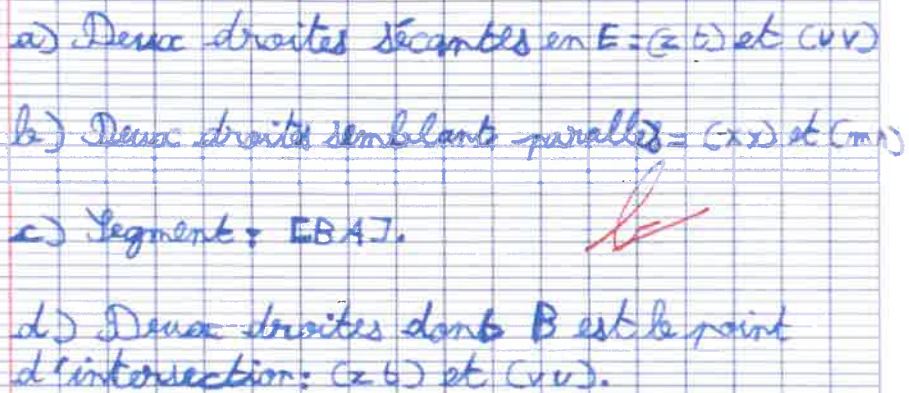 a) Deux droites sécantes en E = (z t) et (u v)
b) Deux droites semblant paralles = (x x) et (m n)
c) Segment : [BA].
d) Deux droites dont B est le point
d'intersection : (z t) et (v u).